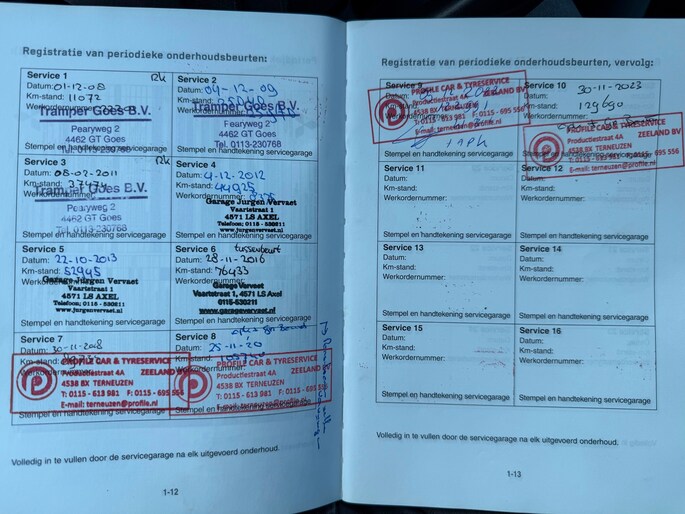 Registratie van periodieke onderhoudsbeurten:
Service 1
Datum: 01-12-08
Km-stand: 11072
Werkordernummer:
Tramper Goes B.V.
Pearyweg 2
4462 GT Goes
Tel. 0113-230768
Stempel en handtekening servicegarage
Service 2
Datum: 04-12-09
Km-stand:
Werkordernummer:
Tramper Goes B.V.
Pearyweg 2
4462 GT Goes
Tel. 0113-230768
Stempel en handtekening servicegarage
Service 3
Datum: 08-02-2011
Km-stand:
Werkordernummer:
Tramper Goes B.V.
Pearyweg 2
4462 GT Goes
Tel. 0113-230768
Stempel en handtekening servicegarage
Service 4
Datum: 4-12-2012
Km-stand: 44925
Werkordernummer:
Garage Jurgen Vervaet
Vaartstraat 1
4571 LS AXEL
Telefoon: 0115 - 530211
www.jurgenvervaet.nl
Stempel en handtekening servicegarage
Service 5
Datum: 22-10-2013
Km-stand: 52945
Werkordernummer:
Garage Jurgen Vervaet
Vaartstraat 1
4571 LS AXEL
Telefoon: 0115 - 530211
www.jurgenvervaet.nl
Stempel en handtekening servicegarage
Service 6 tussenbeurt
Datum: 28-11-2016
Km-stand: 76433
Werkordernummer:
Garage Vervaet
Vaartstraat 1, 4571 LS Axel
0115-530211
www.garagevervaet.nl
Stempel en handtekening servicegarage
Service 7
Datum: 30-11-2018
Km-stand:
PROFILE CAR & TYRESERVICE
Productiestraat 4A ZEELAND BV
4538 BX TERNEUZEN
T: 0115 - 613 981 F: 0115 - 695 556
E-mail: terneuzen@profile.nl
Stempel en handtekening servicegarage
Service 8
Datum: 25-11-20
Km-stand:
Werkordernummer:
PROFILE CAR & TYRESERVICE
Productiestraat 4A ZEELAND BV
4538 BX TERNEUZEN
T: 0115 - 613 981 F: 0115 - 695 556
E-mail: terneuzen@profile.nl
Stempel en handtekening servicegarage
Volledig in te vullen door de servicegarage na elk uitgevoerd onderhoud.
1-12
Registratie van periodieke onderhoudsbeurten, vervolg:
Service 9
Datum:
Km-stand:
PROFILE CAR & TYRESERVICE
Productiestraat 4A ZEELAND BV
4538 BX TERNEUZEN
T: 0115 - 613 981 F: 0115 - 695 556
E-mail: terneuzen@profile.nl
Stempel en handtekening servicegarage
Service 10
Datum: 30-11-2023
Km-stand: 129690
Werkordernummer:
PROFILE CAR & TYRESERVICE
Productiestraat 4A ZEELAND BV
4538 BX TERNEUZEN
T: 0115 - 613 981 F: 0115 - 695 556
E-mail: terneuzen@profile.nl
Stempel en handtekening servicegarage
Service 11
Datum:
Km-stand:
Werkordernummer:
Stempel en handtekening servicegarage
Service 12
Datum:
Km-stand:
Werkordernummer:
Stempel en handtekening servicegarage
Service 13
Datum:
Km-stand:
Werkordernummer:
Stempel en handtekening servicegarage
Service 14
Datum:
Km-stand:
Werkordernummer:
Stempel en handtekening servicegarage
Service 15
Datum:
Km-stand:
Werkordernummer:
Stempel en handtekening servicegarage
Service 16
Datum:
Km-stand:
Werkordernummer:
Stempel en handtekening servicegarage
Volledig in te vullen door de servicegarage na elk uitgevoerd onderhoud.
1-13